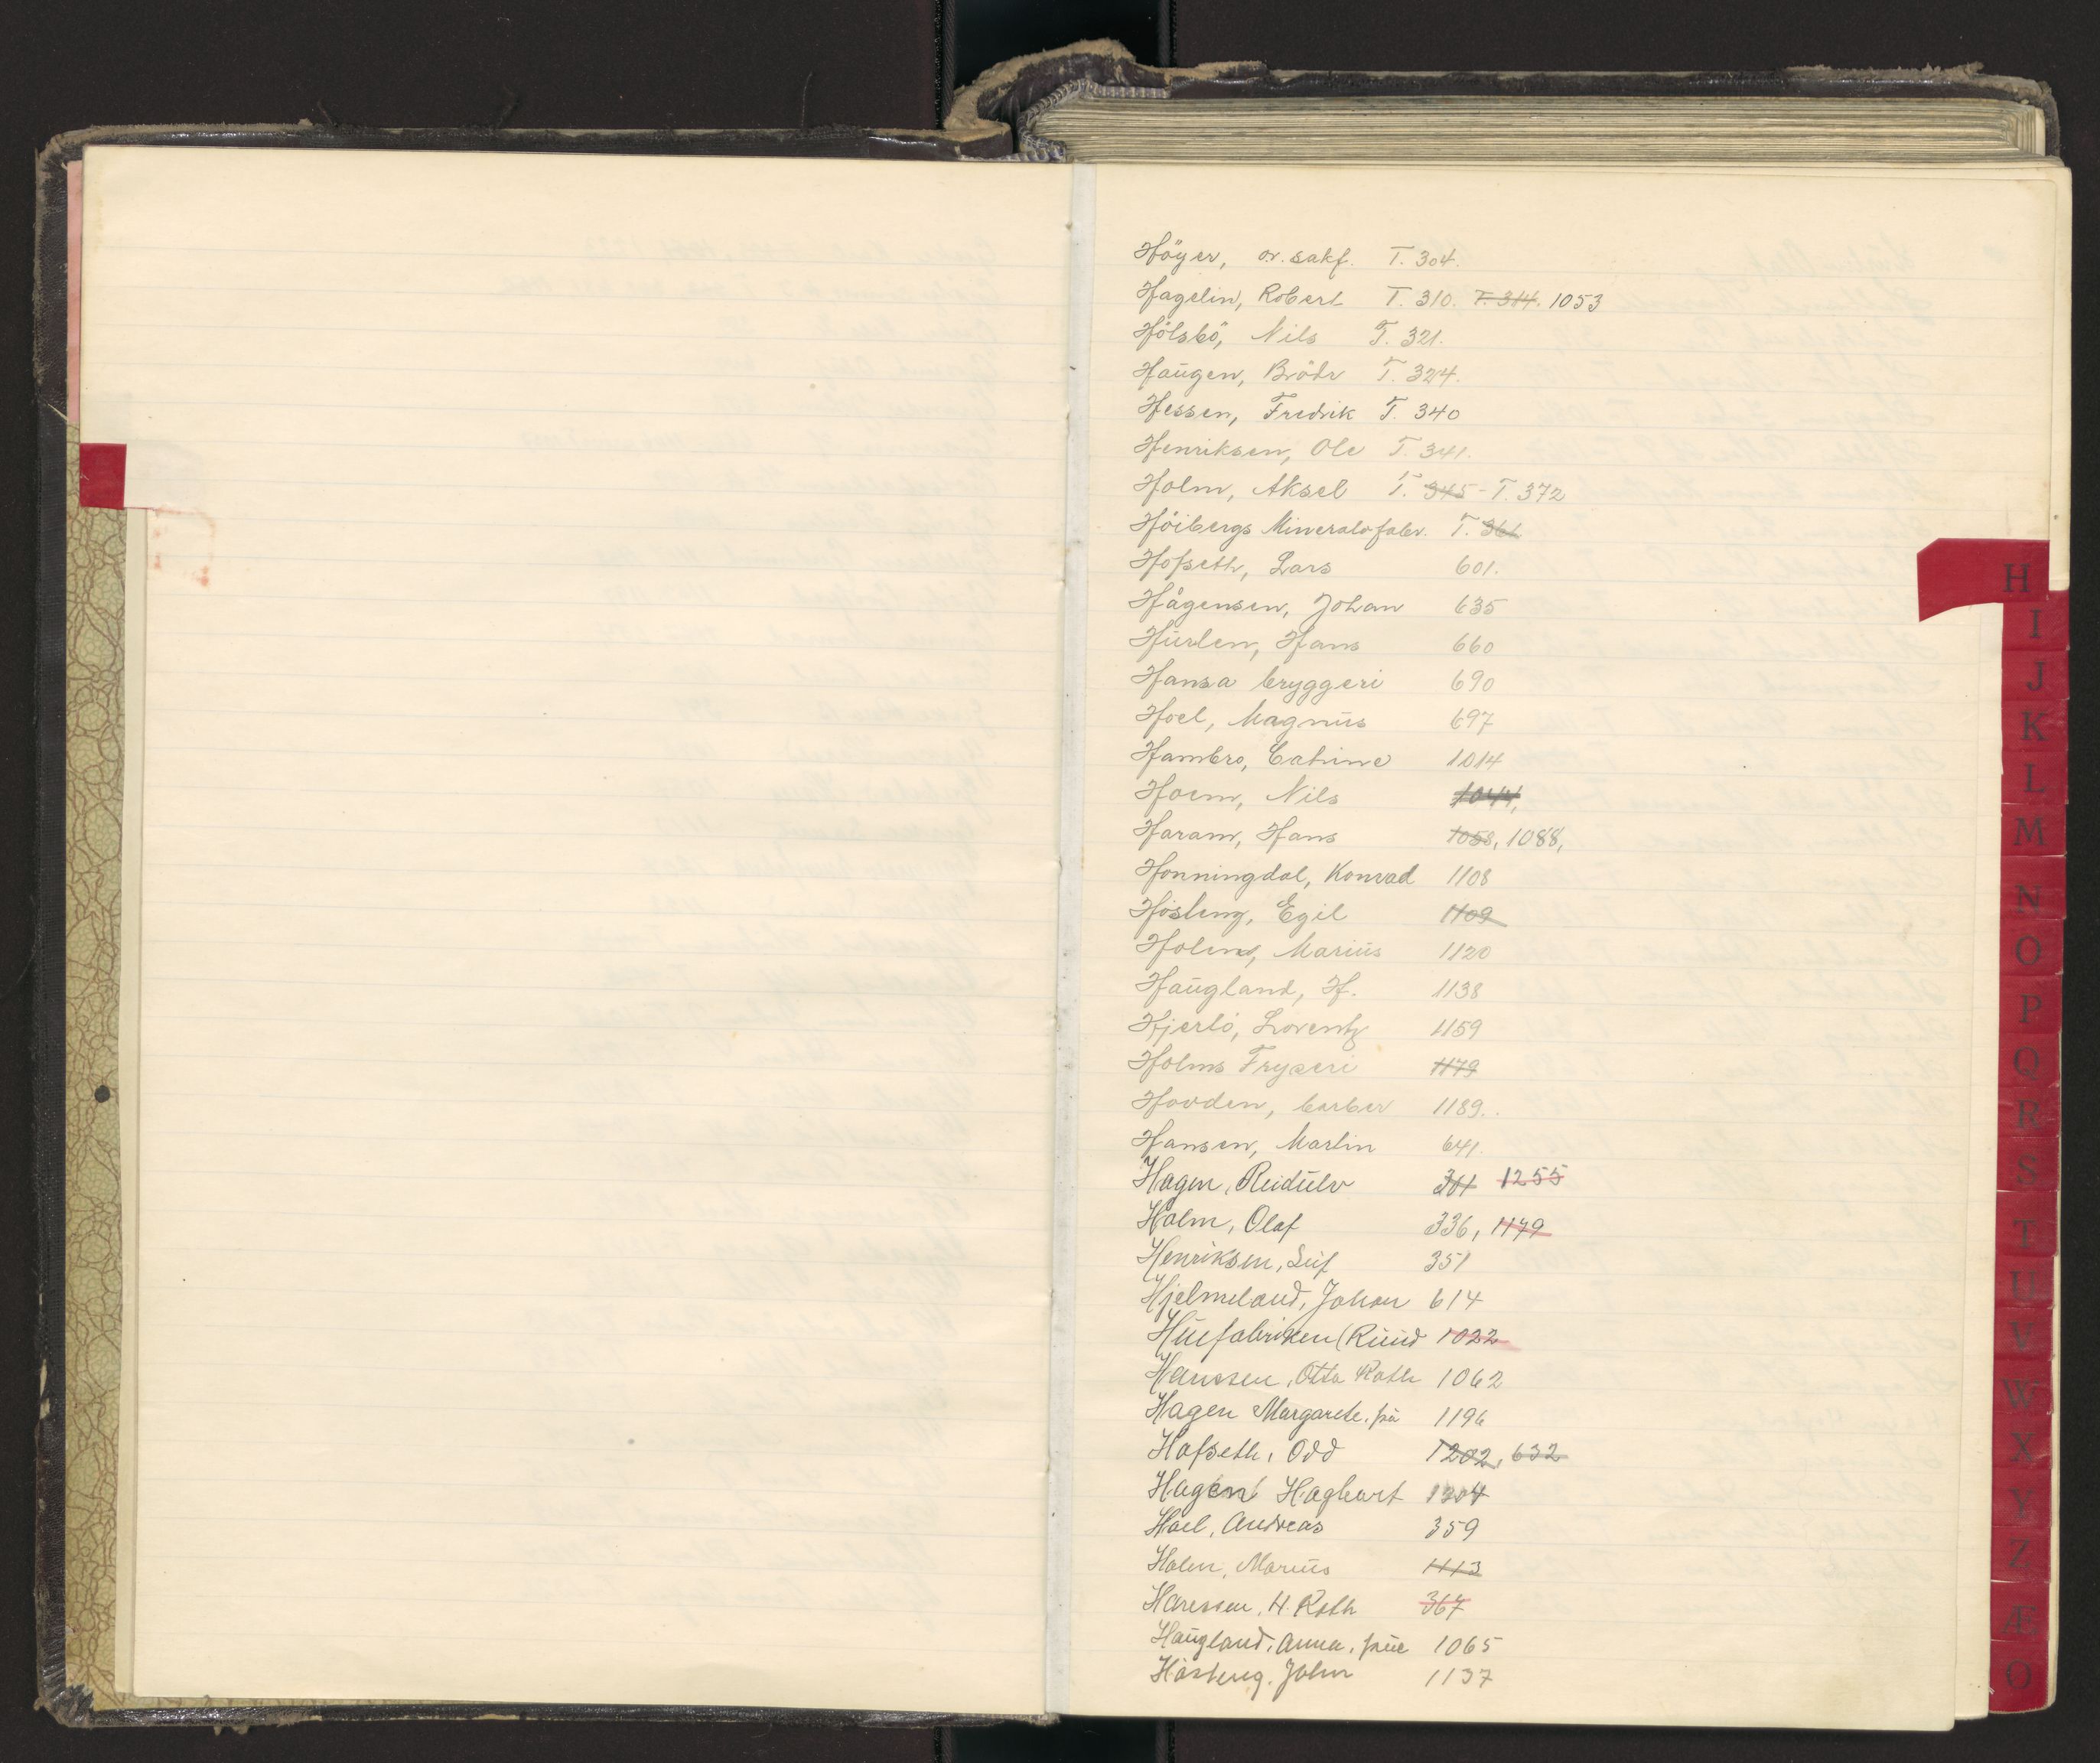 Höyer, o.r. sakf. T. 304.
Hagelin, Robert T. 310. T. 314. 1053
Hölsbö, Nils T. 321.
Haugen, Brödr T. 324.
Hessen, Fredrik T. 340
Henriksen, Ole T. 341.
Holm, Aksel T. 345 - T. 372
Höibergs Mineralv.fabr. T. 361
Hofseth, Lars 601.
Hågensen, Johan 635
Hurlen, Hans 660
Hansa bryggeri 690
Hoel, Magnus 697
Hambro, Catrine 1014
Hoem, Nils 1044,
Haram, Hans 1058, 1088,
Honningdal, Konrad 1108
Hösteng, Egil 1109
Holm, Marius 1120
Haugland, H. 1138
Hjerlö, Lorentz 1159
Holms Fryseri 1179
Hovden, barber 1189.
Hansen, Martin 641.
Hagen, Reidulv 301 1255
Holm, Olaf 336, 1179
Henriksen, Leif 351
Hjelmeland, Johan 614
Huefabriken (Ruud 1022
Hanssen, Otto Roth 1062
Hagen Margarete, frú 1196
Hofseth, Odd 1202, 632
Hagen Hagbart 1204
Hoel, Andreas 359
Holm, Marius 1113
Hanssen, H. Roth 367
Haugland, Anna, frue 1065
Hösteng, John 1137
H
I
J
K
L
M
N
O
P
Q
R
S
T
U
V
W
X
Y
Z
Æ
O